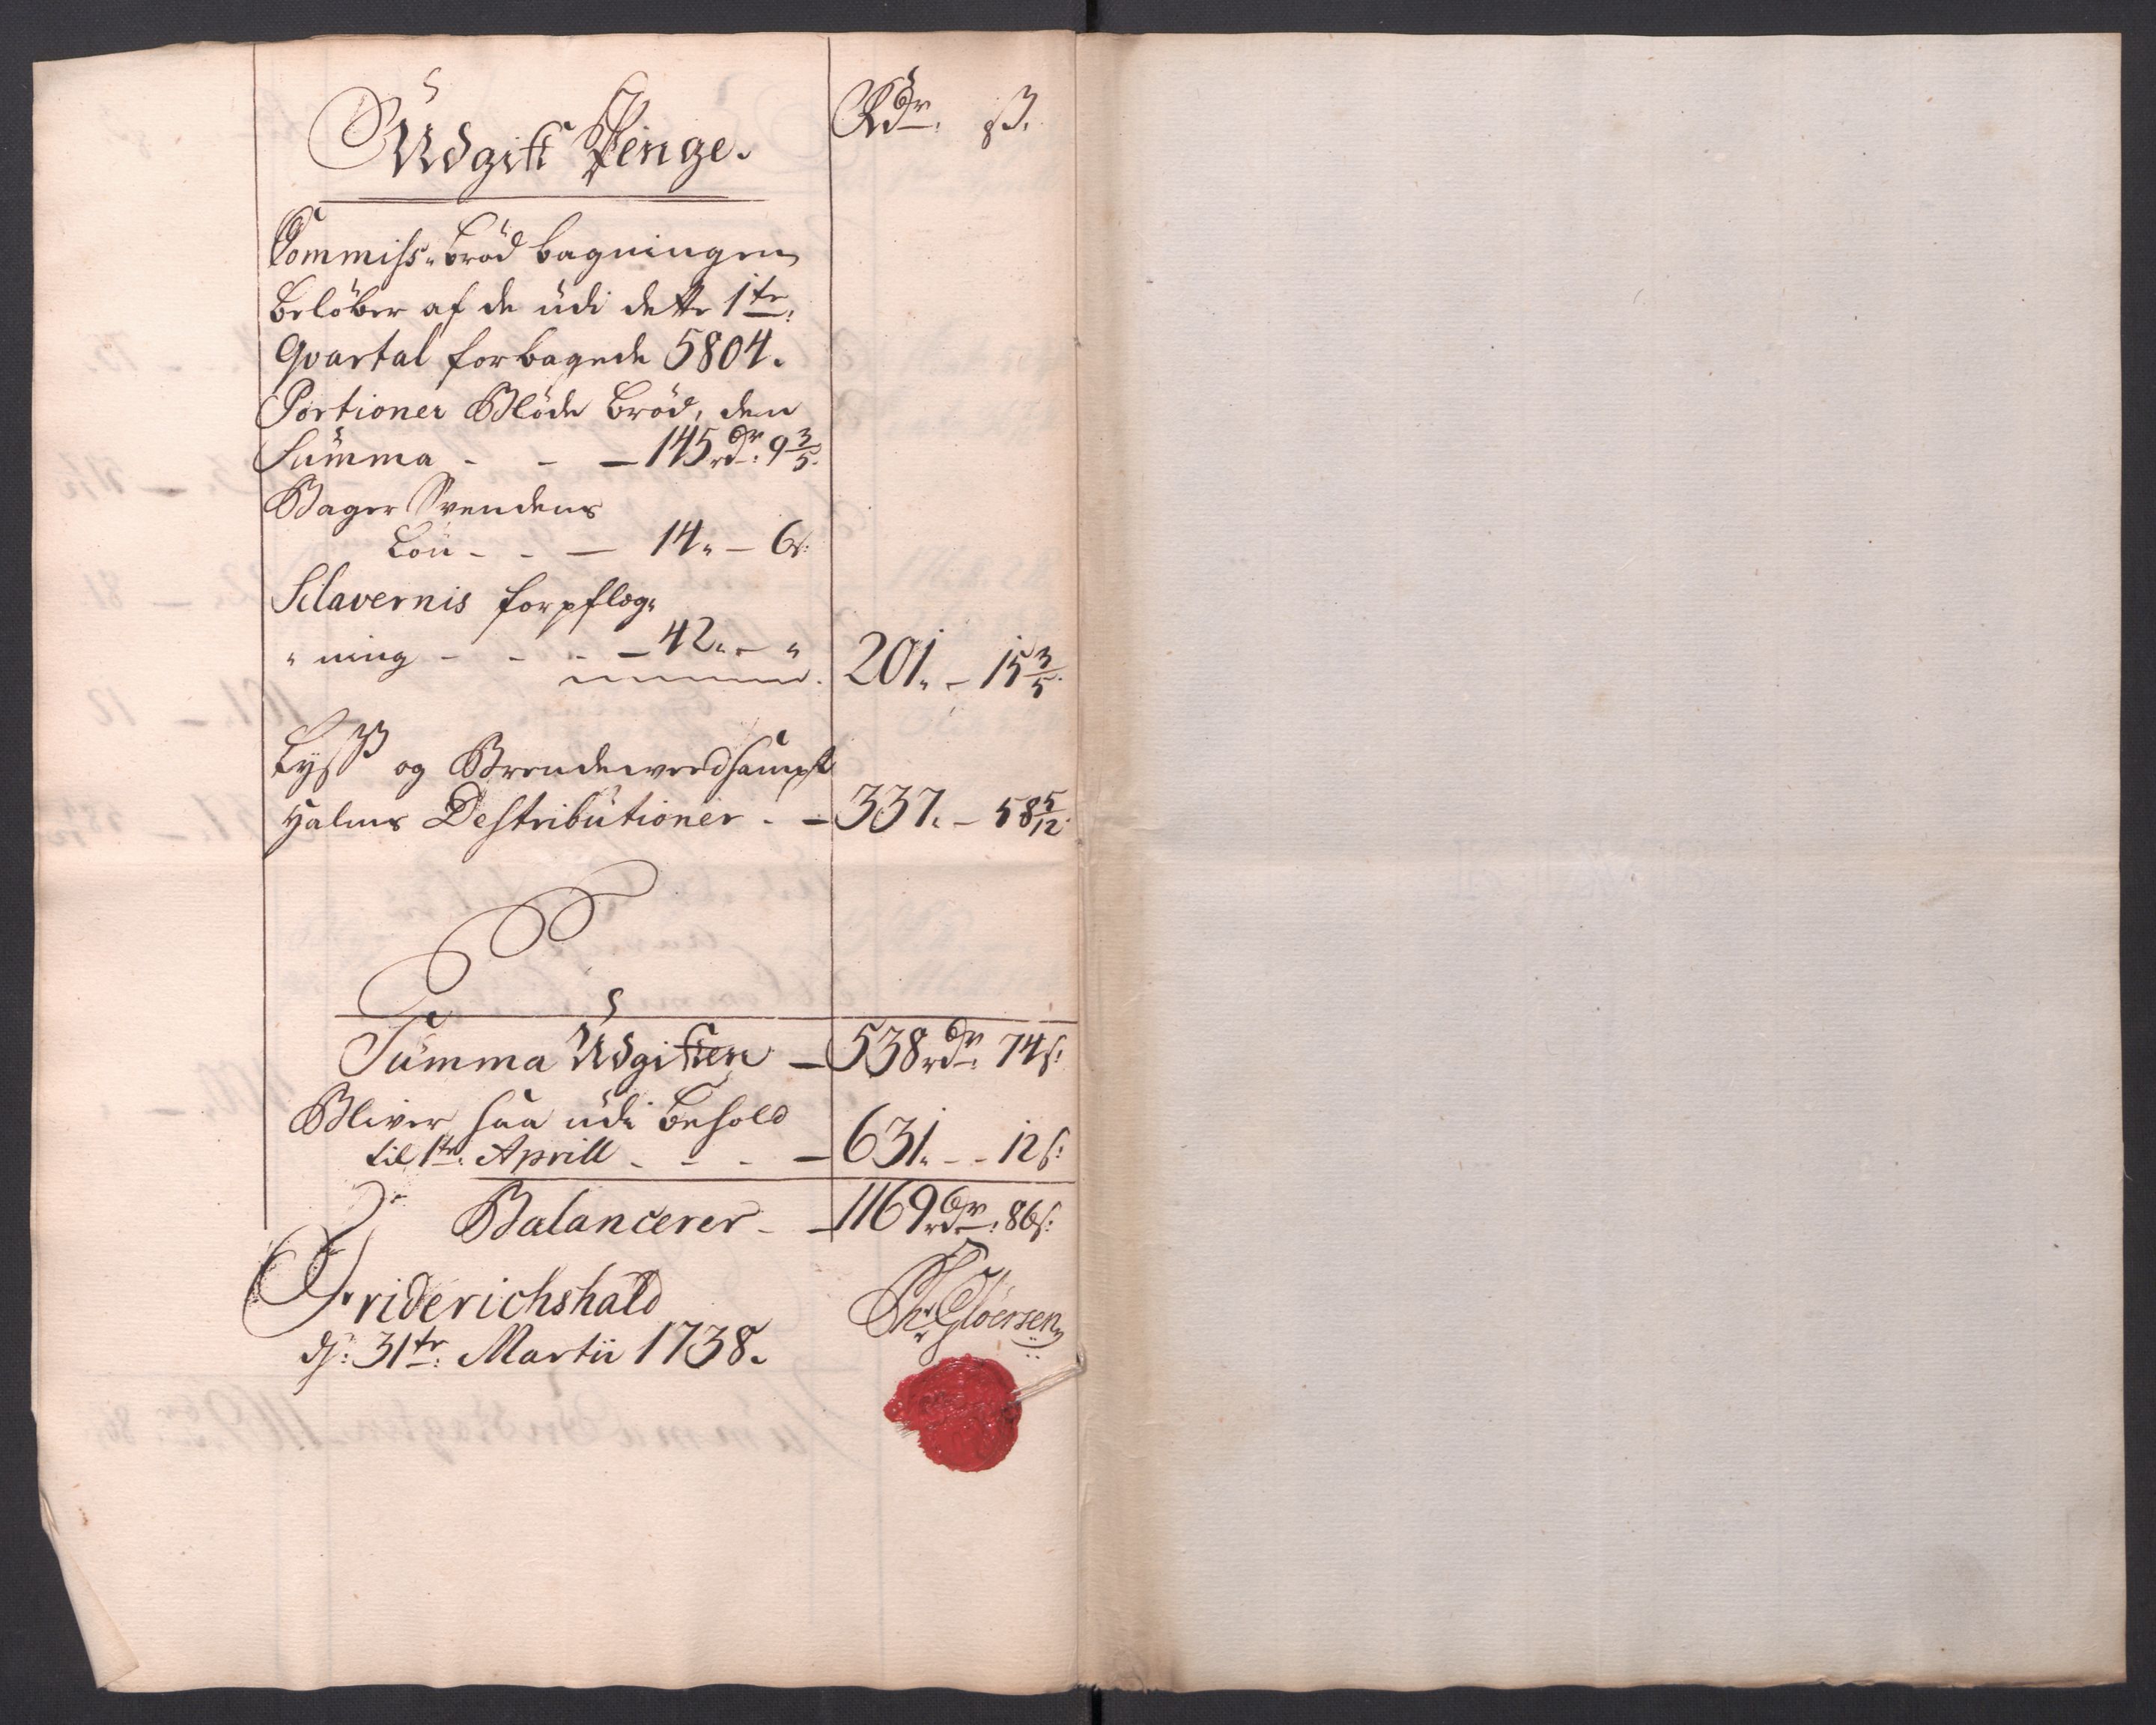 Udgift Penge. Rdr. ß.
Commiss-brød bagningen
beløber af de udi dette 1te
Qvartal forbagede 5804.
Portioner Bløde brød, den
Summa - - - 145 rdr: 9 3/5.
Bager Svendens
Løn - - - 14„ - 6ß:
Sclavernis forpfleg„
„ning - - - - 42„ - „ 201„ - 15 3/5.
Lysß og Brendeveed sampt
Halms Destributioner - - 337„ - 58 5/12.
Summa Udgiften - 538 rdr: 74ß:
Bliver saa udi behold
til 1te: Aprill - - - - 631„ - - 12ß:
Balancerer - - 1169 rdr: 86ß:
Friderichshald
d: 31te: Martii 1738.
Gløersen